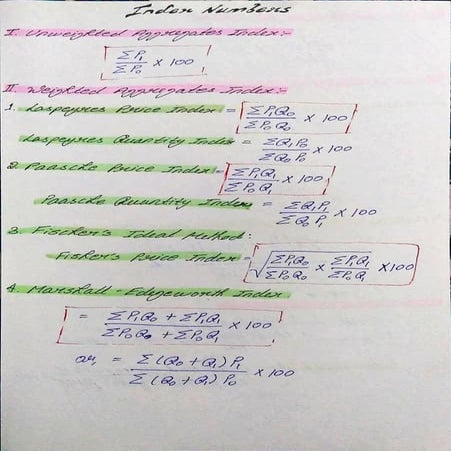 Index Numbers
I. Unweighted Aggregates Index:-
ΣP₁/ΣP₀ × 100
II. Weighted Aggregates Index:-
1. Laspeyres Price Index = ΣP₁Q₀/ΣP₀Q₀ × 100
Laspeyres Quantity Index = ΣQ₁P₀/ΣQ₀P₀ × 100
2. Paasche Price Index = ΣP₁Q₁/ΣP₀Q₁ × 100
Paasche Quantity Index = ΣQ₁P₁/ΣQ₀P₁ × 100
3. Fischer's Ideal Method:
Fisher's Price Index = √(ΣP₁Q₀/ΣP₀Q₀ × ΣP₁Q₁/ΣP₀Q₁) × 100
4. Marshall-Edgeworth Index
= (ΣP₁Q₀ + ΣP₁Q₁)/(ΣP₀Q₀ + ΣP₀Q₁) × 100
or, = Σ(Q₀+Q₁)P₁/Σ(Q₀+Q₁)P₀ × 100